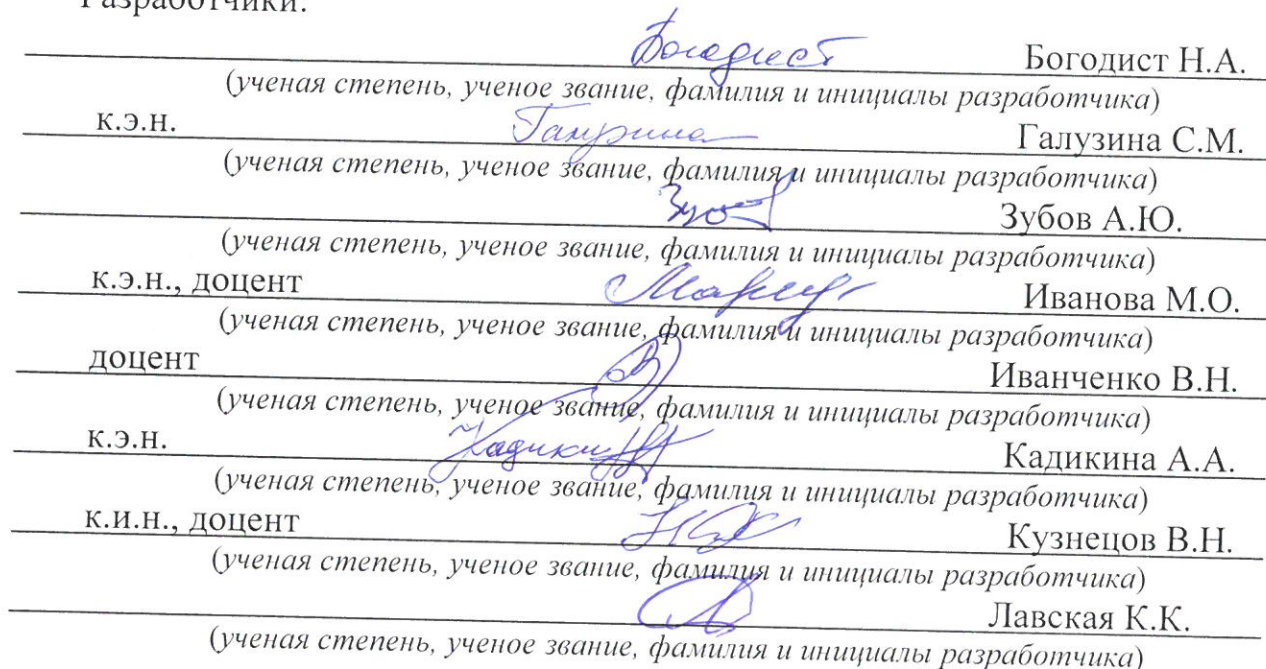 Разработчики:
Богодист Богодист Н.А.
(ученая степень, ученое звание, фамилия и инициалы разработчика)
к.э.н. Галузина С.М.
(ученая степень, ученое звание, фамилия и инициалы разработчика)
Зубов А.Ю.
(ученая степень, ученое звание, фамилия и инициалы разработчика)
к.э.н., доцент Иванова М.О.
(ученая степень, ученое звание, фамилия и инициалы разработчика)
доцент Иванченко В.Н.
(ученая степень, ученое звание, фамилия и инициалы разработчика)
к.э.н. Кадикина А.А.
(ученая степень, ученое звание, фамилия и инициалы разработчика)
к.и.н., доцент Кузнецов В.Н.
(ученая степень, ученое звание, фамилия и инициалы разработчика)
Лавская К.К.
(ученая степень, ученое звание, фамилия и инициалы разработчика)